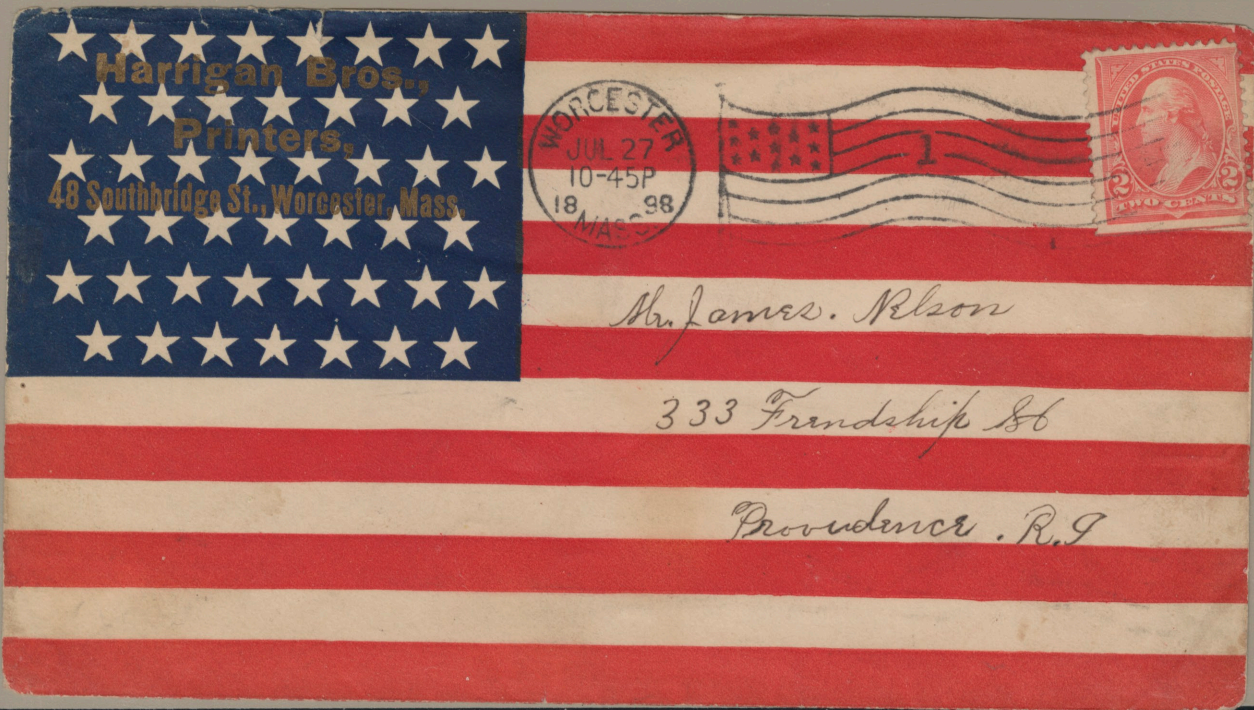 Harrigan Bros.,
Printers,
48 Southbridge St., Worcester, Mass.
WORCESTER
JUL 27
10-45P
18 98
MASS.
1
UNITED STATES POSTAGE
2 2
TWO CENTS
Mr. James. Nelson
333 Frendship St
Providence. R.I